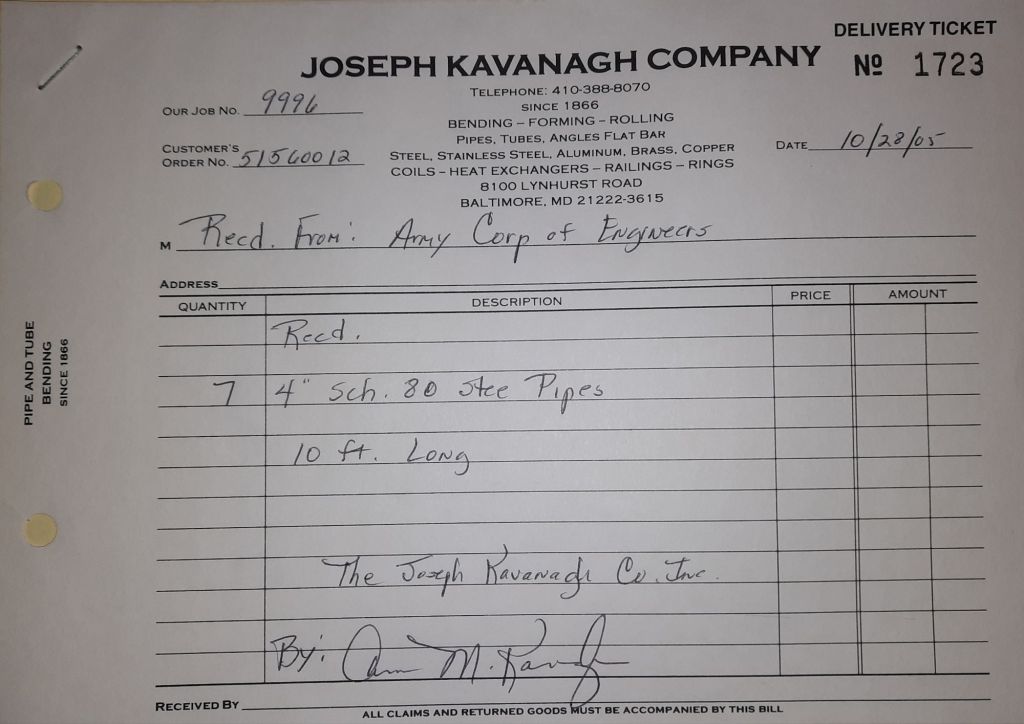 DELIVERY TICKET
JOSEPH KAVANAGH COMPANY
Nº 1723
TELEPHONE: 410-388-8070
SINCE 1866
BENDING – FORMING – ROLLING
PIPES, TUBES, ANGLES FLAT BAR
STEEL, STAINLESS STEEL, ALUMINUM, BRASS, COPPER
COILS – HEAT EXCHANGERS – RAILINGS – RINGS
8100 LYNHURST ROAD
BALTIMORE, MD 21222-3615
OUR JOB NO. 9996
CUSTOMER'S
ORDER NO. 51560012
DATE 10/28/05
M Recd. From: Army Corp of Engineers
ADDRESS
QUANTITY DESCRIPTION PRICE AMOUNT
Recd.
7 4" Sch. 80 Stee Pipes
10 ft. Long
The Joseph Kavanagh Co. Inc.
By: M. Kavanagh
RECEIVED BY
ALL CLAIMS AND RETURNED GOODS MUST BE ACCOMPANIED BY THIS BILL
PIPE AND TUBE
BENDING
SINCE 1866